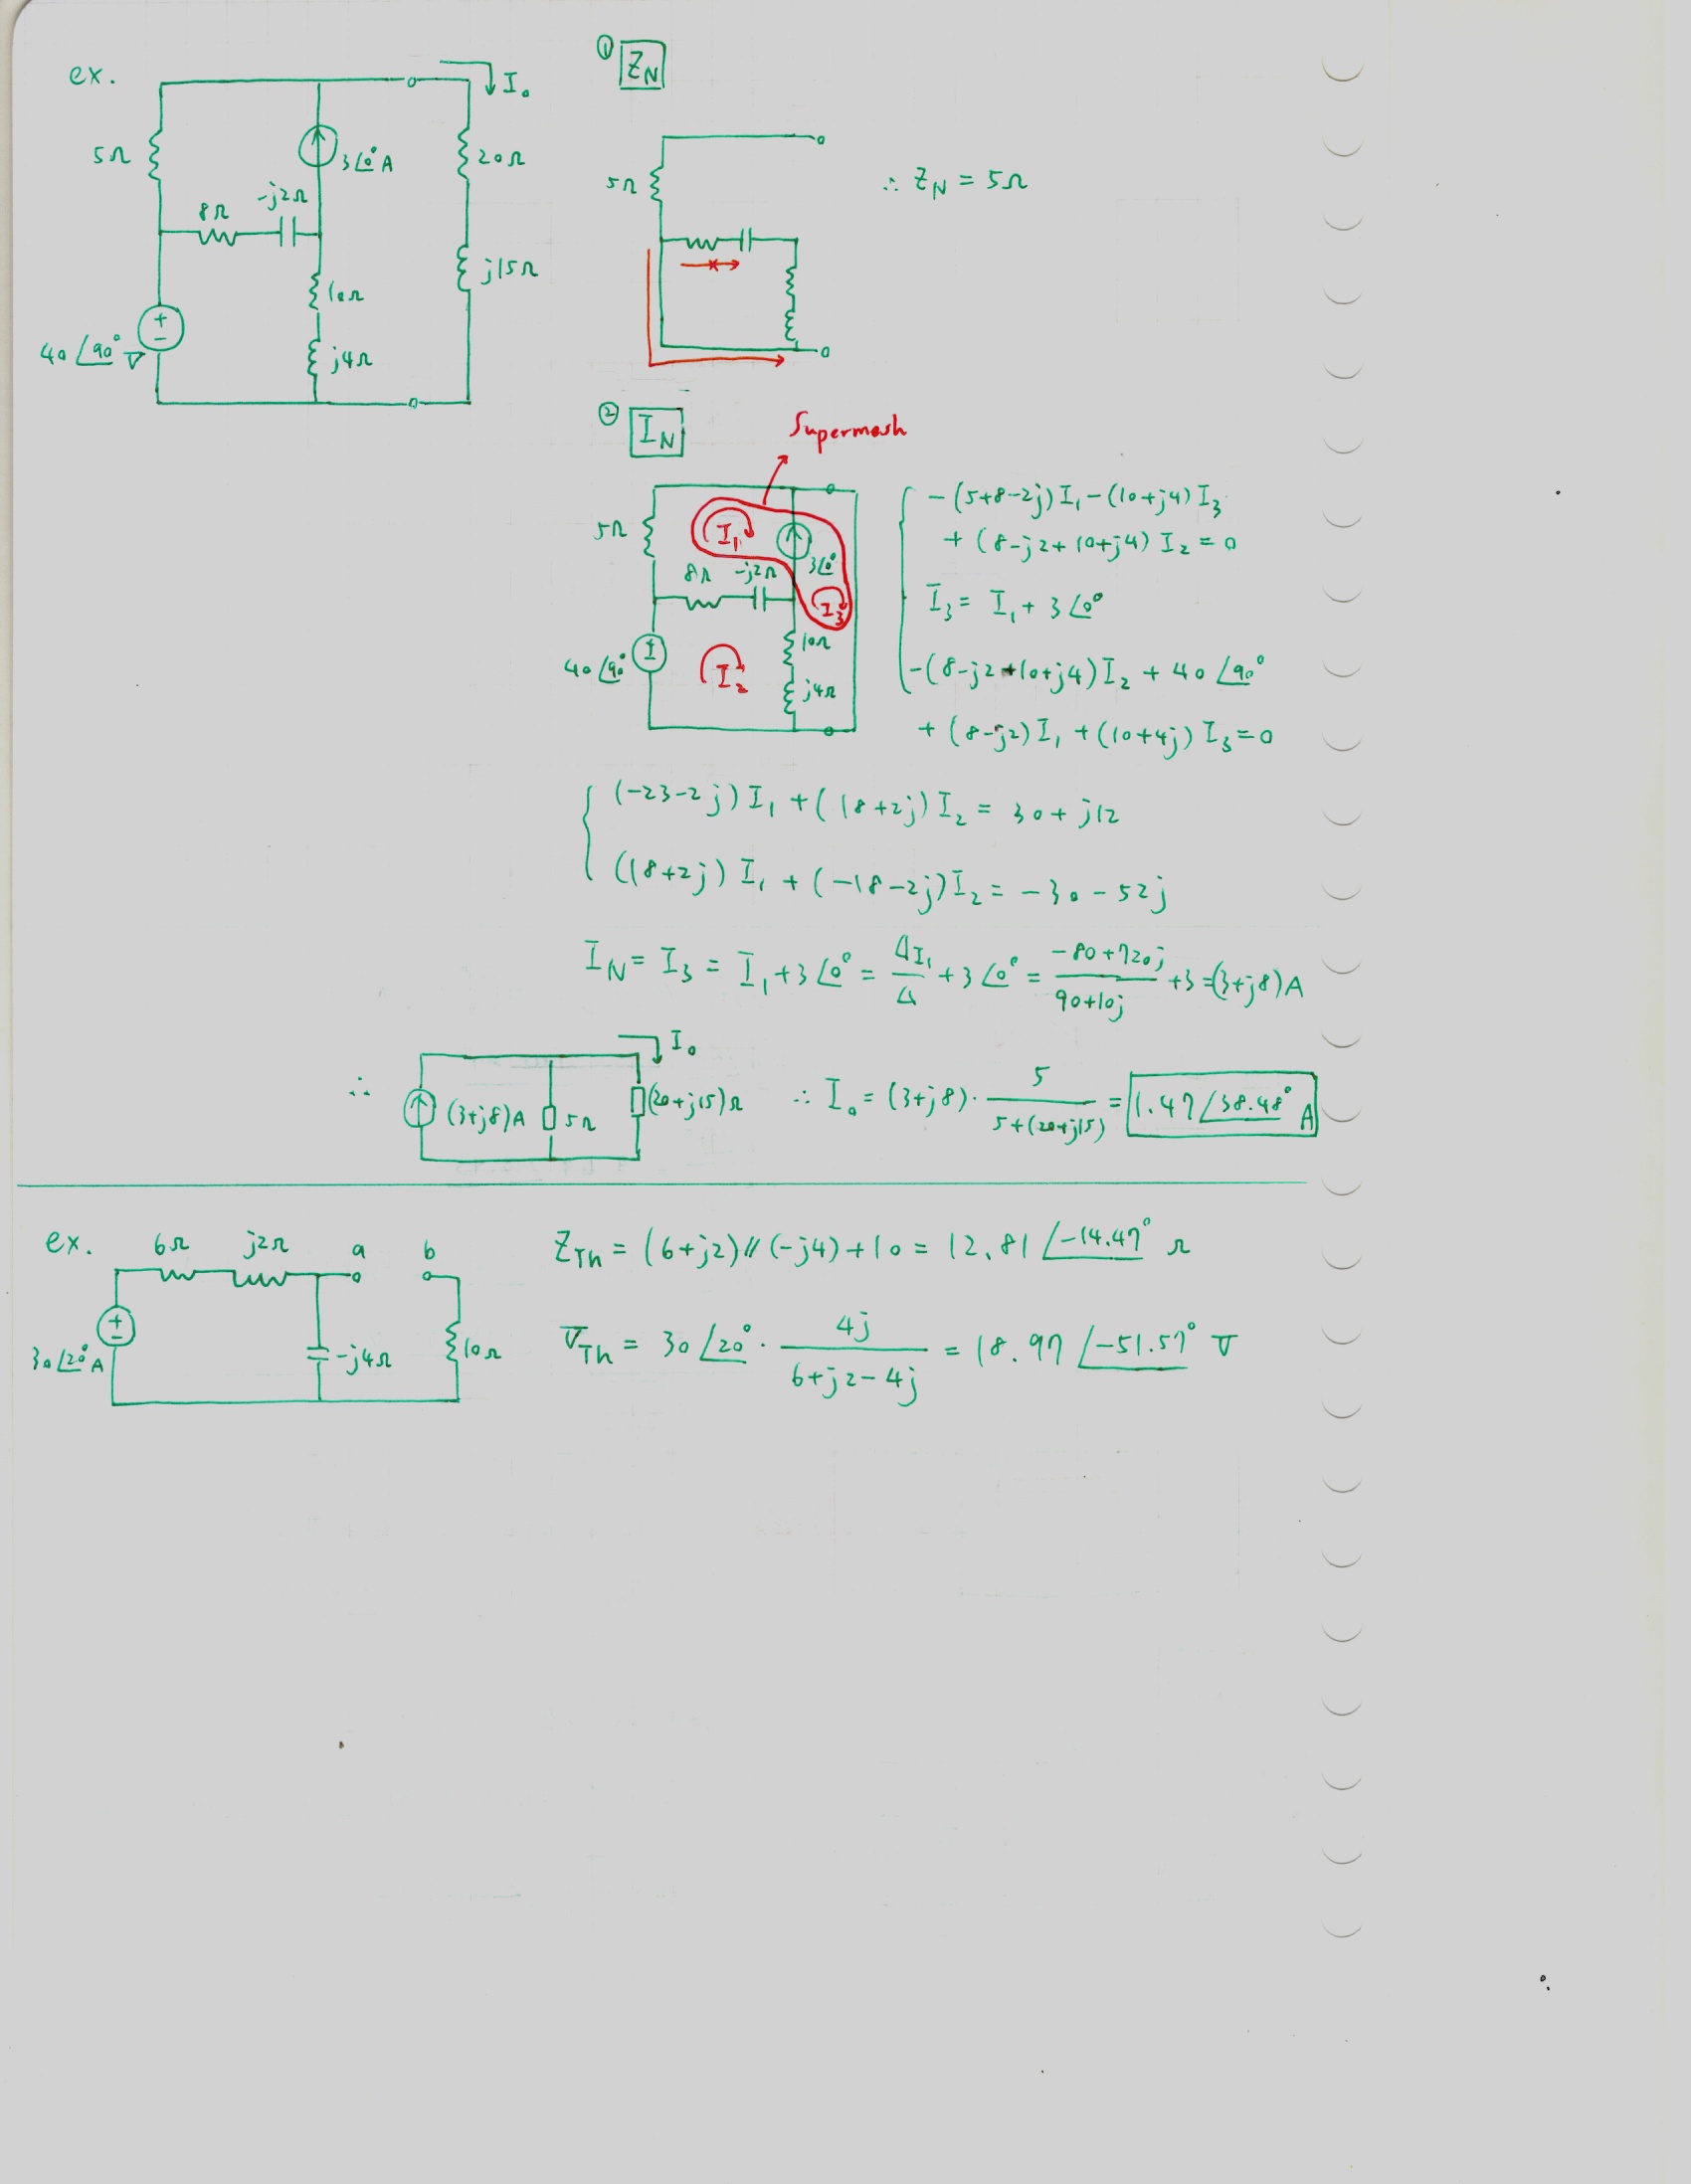 ex.
I₀
5Ω
3∠0° A
20Ω
8Ω
-j2Ω
j15Ω
10Ω
40∠90° V
j4Ω
① Z_N
5Ω
∴ Z_N = 5Ω
② I_N
Supermesh
5Ω
I₁
3∠0°
8Ω
-j2Ω
I₃
10Ω
40∠90°
I₂
j4Ω
-(5+8-2j) I₁ -(10+j4) I₃
+ (8-j2+10+j4) I₂ = 0
I₃ = I₁ + 3∠0°
-(8-j2+10+j4) I₂ + 40∠90°
+ (8-j2) I₁ + (10+4j) I₃ = 0
(-23-2j) I₁ + (18+2j) I₂ = 30 + j12
(18+2j) I₁ + (-18-2j) I₂ = -30 - 52j
I_N = I₃ = I₁ + 3∠0° = ΔI₁/Δ + 3∠0° = (-80+720j)/(90+10j) + 3 = (3+j8) A
I₀
∴ (3+j8)A 5Ω (20+j15)Ω
∴ I₀ = (3+j8) · 5/(5+(20+j15)) = 1.47∠38.48° A
ex.
6Ω
j2Ω
a
b
30∠20° A
-j4Ω
10Ω
Z_Th = (6+j2) // (-j4) + 10 = 12.81∠-14.47° Ω
V_Th = 30∠20° · 4j/(6+j2-4j) = 18.97∠-51.57° V